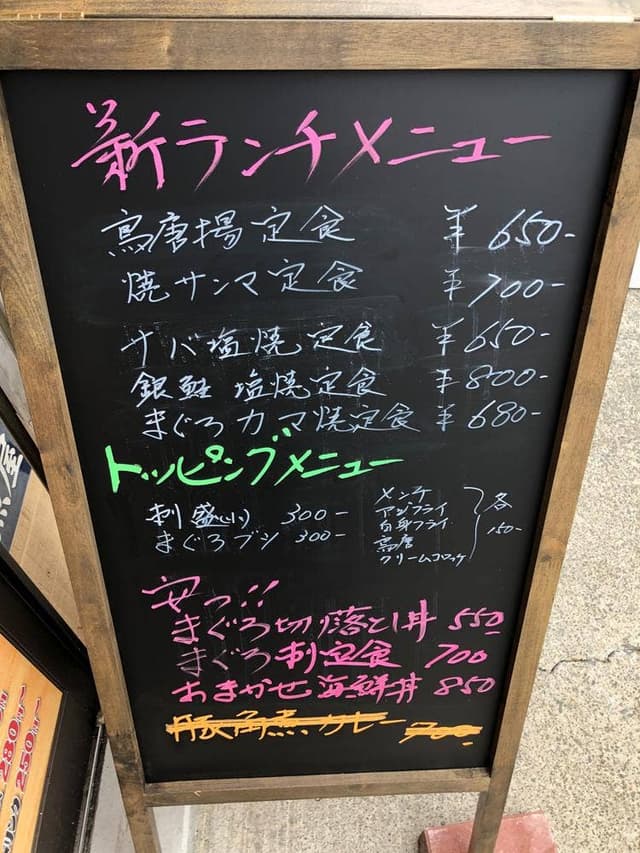 新ランチメニュー
鳥唐揚定食 ¥650-
焼サンマ定食 ¥700-
サバ塩焼定食 ¥650-
銀鮭塩焼定食 ¥800-
まぐろカマ焼定食 ¥680-
トッピングメニュー
刺盛(小) 300-
まぐろブシ 300-
メンチ
アジフライ
白身フライ
鳥唐
クリームコロッケ
各
150-
安っ!!
まぐろ切り落とし丼 550
まぐろ刺定食 700
おまかせ海鮮丼 850
豚角煮カレー 700-
280円
250円